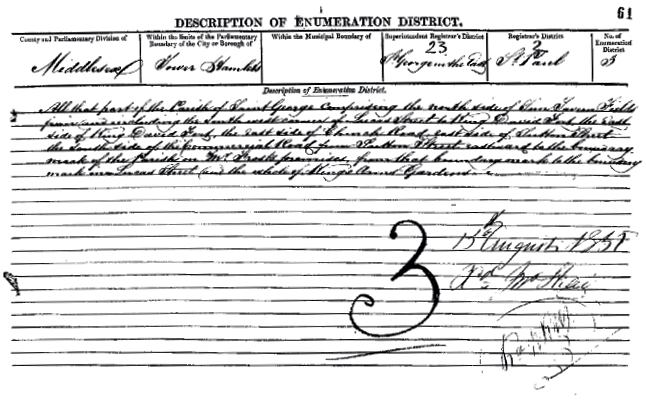 61
DESCRIPTION OF ENUMERATION DISTRICT.
County and Parliamentary Division of
Within the limits of the Parliamentary Boundary of the City or Borough of
Within the Municipal Boundary of
Superintendent Registrar's District
Registrar's District
No. of Enumeration District
23
2
Middlesex
Tower Hamlets
St George in the East
St Paul
3
Description of Enumeration District.
All that part of the Parish of Saint George comprising the north side of Sun Tavern Fields
from and including the south west corner of Lucas Street to King David Fort, the east
side of King David Fort, the east side of Church Road, east side of Sutton Street
the south side of the Commercial Road from Sutton Street eastward to the boundary
mark of the Parish on Mr premises, from that boundary mark to the boundary
mark in Lucas Street and the whole of Anns Gardens
3
15 August 1851